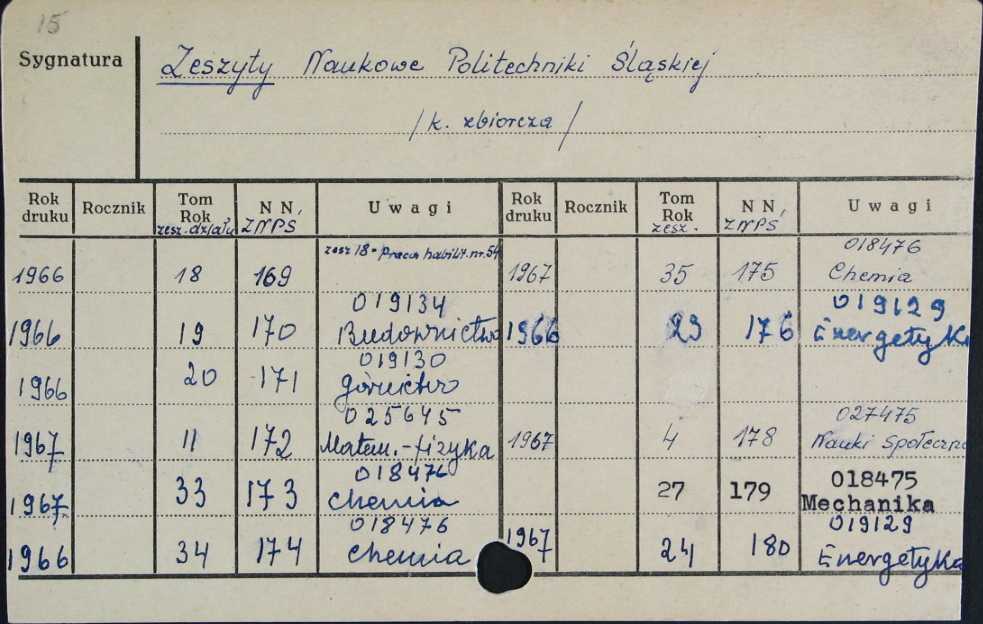 15
Sygnatura
Zeszyty Naukowe Politechniki Śląskiej
/k. zbiorcza/
Rok druku Rocznik Tom Rok zesz. działu N N, ZNPS Uwagi Rok druku Rocznik Tom Rok zesz. N N, ZNPS Uwagi
zesz 18 - Praca habilit. nr. 54 018476
1966 18 169 1967 35 175 Chemia
019134 019129
1966 19 170 Budownictwo 1966 23 176 Energetyka
019130
1966 20 171 górnictwo
025645 027475
1967 11 172 Matem.-fizyka 1967 4 178 Nauki Społeczne
018476 018475
1967 33 173 Chemia 27 179 Mechanika
018476 019129
1966 34 174 Chemia 1967 24 180 Energetyka